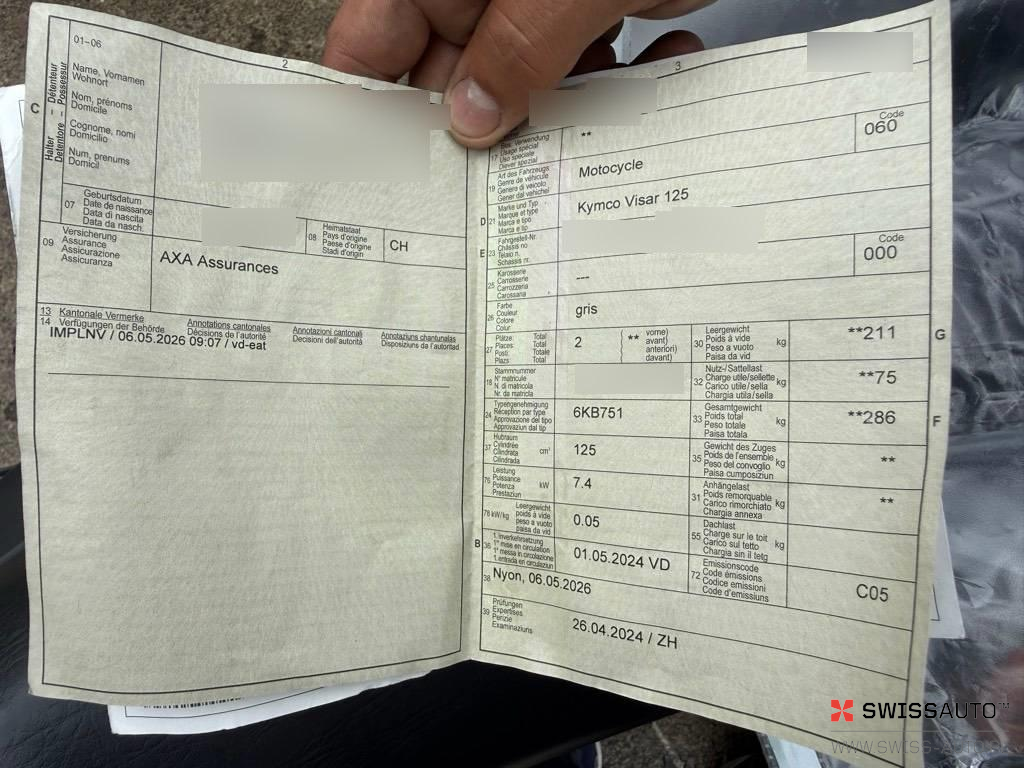 2
01-06
C
Halter – Détenteur
Detentore – Possessur
Name, Vornamen
Wohnort
Nom, prénoms
Domicile
Cognome, nomi
Domicilio
Num, prenums
Domicil
07
Geburtsdatum
Date de naissance
Data di nascita
Data da nasch.
08
Heimatstaat
Pays d'origine
Paese d'origine
Stadi d'origin
CH
09
Versicherung
Assurance
Assicurazione
Assicuranza
AXA Assurances
13 Kantonale Vermerke
14 Verfügungen der Behörde
Annotations cantonales
Décisions de l'autorité
Annotazioni cantonali
Decisioni dell'autorità
Annotaziuns chantunalas
Disposiziuns da l'autoritad
IMPLNV / 06.05.2026 09:07 / vd-eat
3
17
Bes. Verwendung
Usage spécial
Uso speciale
Diever spezial
**
19
Art des Fahrzeugs
Genre de véhicule
Genere di veicolo
Gener dal vehichel
Motocycle
Code
060
D
21
Marke und Typ
Marque et type
Marca e tipo
Marca e tip
Kymco Visar 125
E
23
Fahrgestell-Nr.
Châssis no
Telaio n.
Schassis nr.
25
Karosserie
Carrosserie
Carrozzeria
Carossaria
---
Code
000
26
Farbe
Couleur
Colore
Colur
gris
27
Plätze: Total
Places: Total
Posti: Totale
Plazs: Total
2
(** vorne)
avant)
anteriori)
davant)
30
Leergewicht
Poids à vide
Peso a vuoto
Paisa da vid
kg
**211
G
18
Stammnummer
N° matricule
N. di matricola
Nr. da matricla
32
Nutz-/Sattellast
Charge utile/sellette
Carico utile/sella
Chargia utila/sella
kg
**75
24
Typengenehmigung
Réception par type
Approvazione del tipo
Approvaziun dal tip
6KB751
33
Gesamtgewicht
Poids total
Peso totale
Paisa totala
kg
**286
F
37
Hubraum
Cylindrée
Cilindrata
Cilindrada
cm³
125
35
Gewicht des Zuges
Poids de l'ensemble
Peso del convoglio
Paisa cumposiziun
kg
**
76
Leistung
Puissance
Potenza
Prestaziun
kW
7.4
31
Anhängelast
Poids remorquable
Carico rimorchiato
Chargia annexa
kg
**
78 kW/kg
Leergewicht
poids à vide
peso a vuoto
paisa da vid
0.05
55
Dachlast
Charge sur le toit
Carico sul tetto
Chargia sin il tetg
kg
B
36
1. Inverkehrsetzung
1re mise en circulation
1a messa in circolazione
1. entrada en circulaziun
01.05.2024 VD
72
Emissionscode
Code émissions
Codice emissioni
Code d'emissiuns
C05
38
Nyon, 06.05.2026
39
Prüfungen
Expertises
Perizie
Examinaziuns
26.04.2024 / ZH
SWISSAUTO™